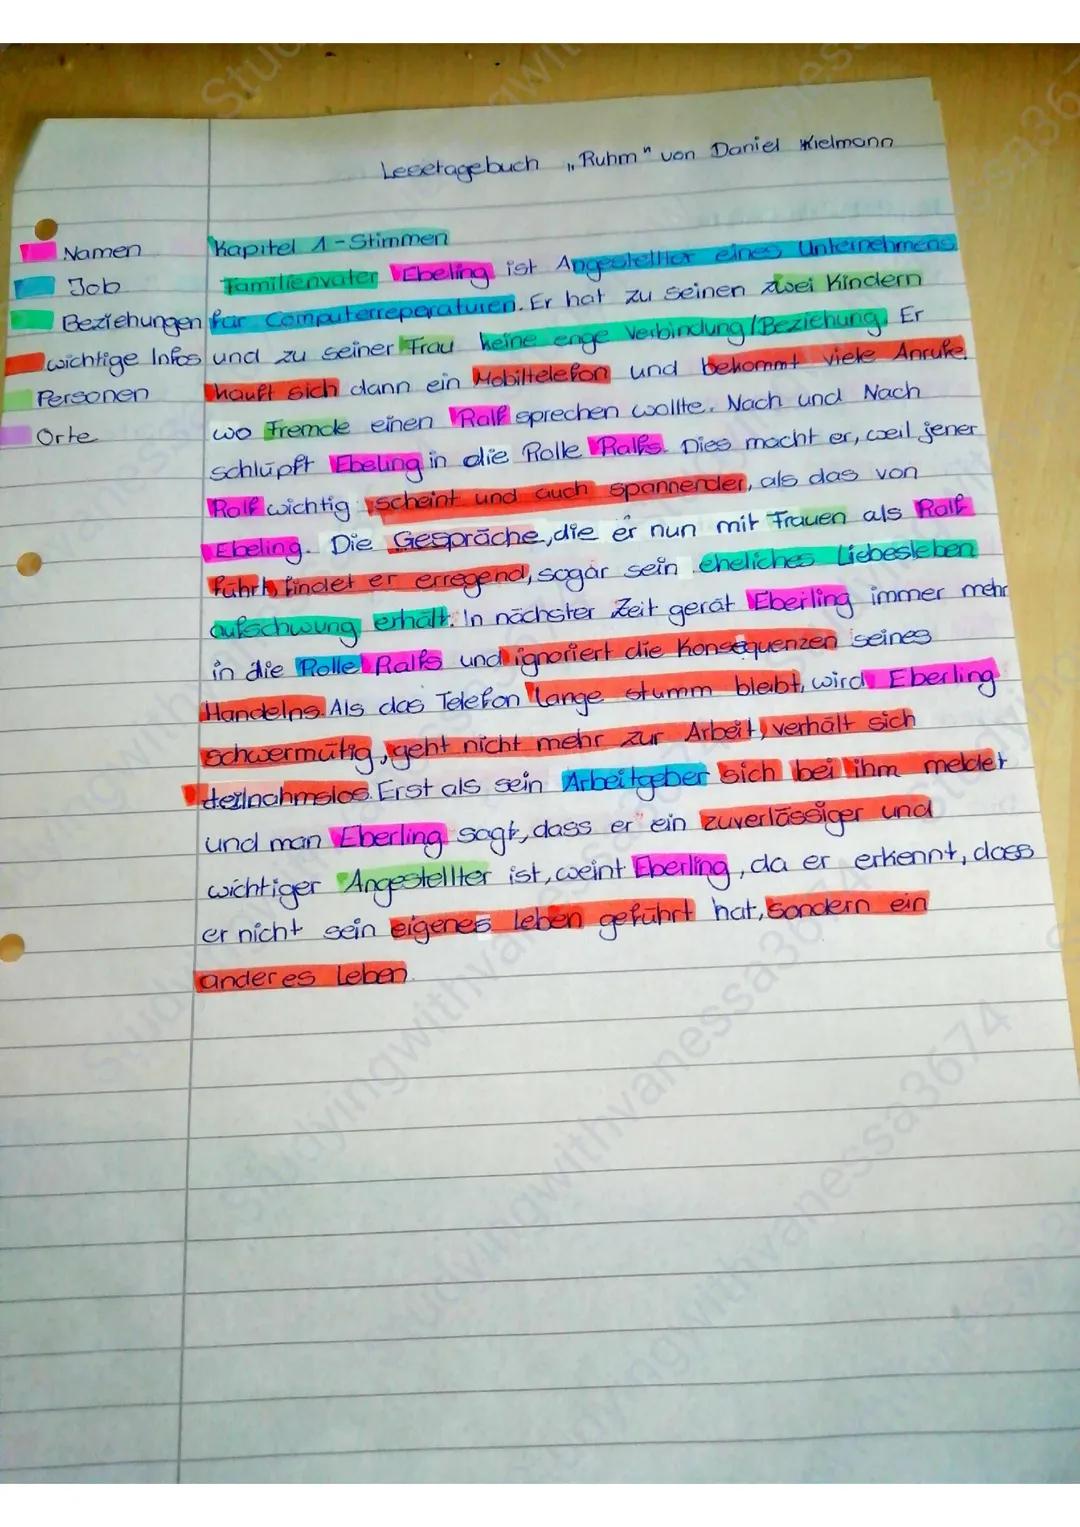 Lesetagebuch „Ruhm" von Daniel Kielmann
Namen
Job
Beziehungen
wichtige Infos
Personen
Orte
Kapitel 1 - Stimmen
Familienvater Ebeling ist Angestellter eines Unternehmens
für Computerreperaturen. Er hat zu seinen zwei Kindern
und zu seiner Frau keine enge Verbindung/Beziehung. Er
kauft sich dann ein Mobiltelefon und bekommt viele Anrufe,
wo Fremde einen Ralf sprechen wollte. Nach und Nach
schlüpft Ebeling in die Rolle Ralfs. Dies macht er, weil jener
Ralf wichtig scheint und auch spannender, als das von
Ebeling. Die Gespräche, die er nun mit Frauen als Ralf
führt, findet er erregend, sogar sein eheliches Liebesleben
aufschwung erhält. In nächster Zeit gerät Eberling immer mehr
in die Rolle Ralfs und ignoriert die Konsequenzen seines
Handelns. Als das Telefon lange stumm bleibt, wird Eberling
schwermütig, geht nicht mehr zur Arbeit, verhält sich
teilnahmslos. Erst als sein Arbeitgeber sich bei ihm meldet
und man Eberling sagt, dass er ein zuverlässiger und
wichtiger Angestellter ist, weint Eberling, da er erkennt, dass
er nicht sein eigenes leben geführt hat, sondern ein
anderes Leben.
Studyingwithvanessa3674